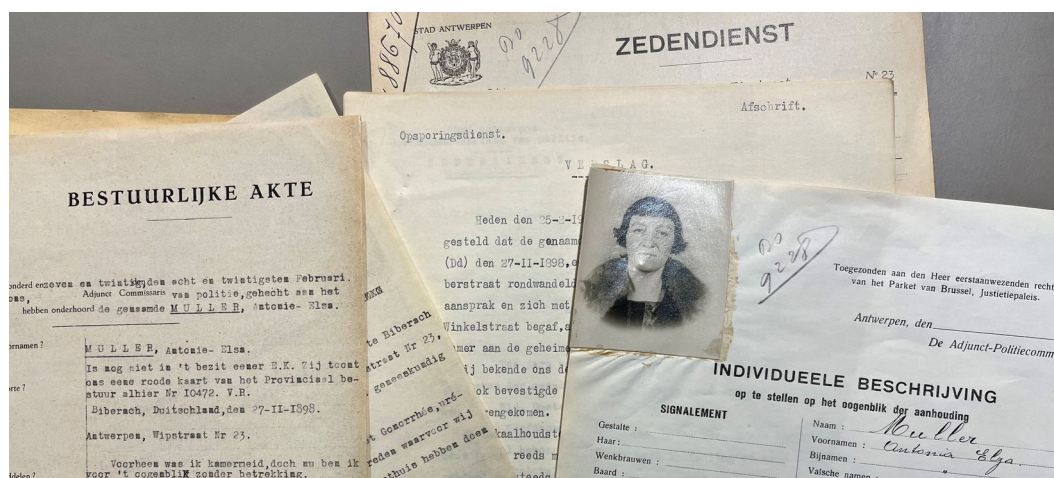 STAD ANTWERPEN
88670
DO
9228
ZEDENDIENST
Nº 23
Afschrift.
Opsporingsdienst.
VERSLAG.
Heden den 25-2-19
gesteld dat de genaam
(Dd) den 27-II-1898,
berstraat rondwandel
aansprak en zich met
Winkelstraat begaf,a
mer aan de geheime
ij bekende ons de
ok bevestigde
rengekomen.
kaalhoudst
reeds m
BESTUURLIJKE AKTE
onderd zeven en twintig,den acht en twintigsten Februari.
ons, Adjunct Commissaris van politie,gehecht aan het
hebben onderhoord de genaamde MULLER, Antonie- Elsa.
ornamen ?
MULLER, Antonie- Elsa.
Is nog niet in 't bezit eener E.K. Zij toont
ons eene roode kaart van het Provinciaal be-
stuur alhier Nr I0472. V.R.
orte ?
Biberach, Duitschland,den 27-II-I898.
Antwerpen, Wipstraat Nr 23.
Voorheen was ik kamermeid,doch nu ben ik
voor 't oogenblik zonder betrekking.
ddelen ?
te Biberach
straat Nr 23,
geneeskundig
t Gonorrhée,uré-
reden waarvoor wij
thuis hebben doen
DO
9228
Toegezonden aan den Heer eerstaanwezenden recht
van het Parket van Brussel, Justietiepaleis.
Antwerpen, den
De Adjunct-Politiecomm
INDIVIDUEELE BESCHRIJVING
op te stellen op het oogenblik der aanhouding
SIGNALEMENT
Gestalte :
Haar:
Wenkbrauwen :
Baard :
Naam : Muller
Voornamen : Antonia Elza.
Bijnamen : "
Valsche namen :